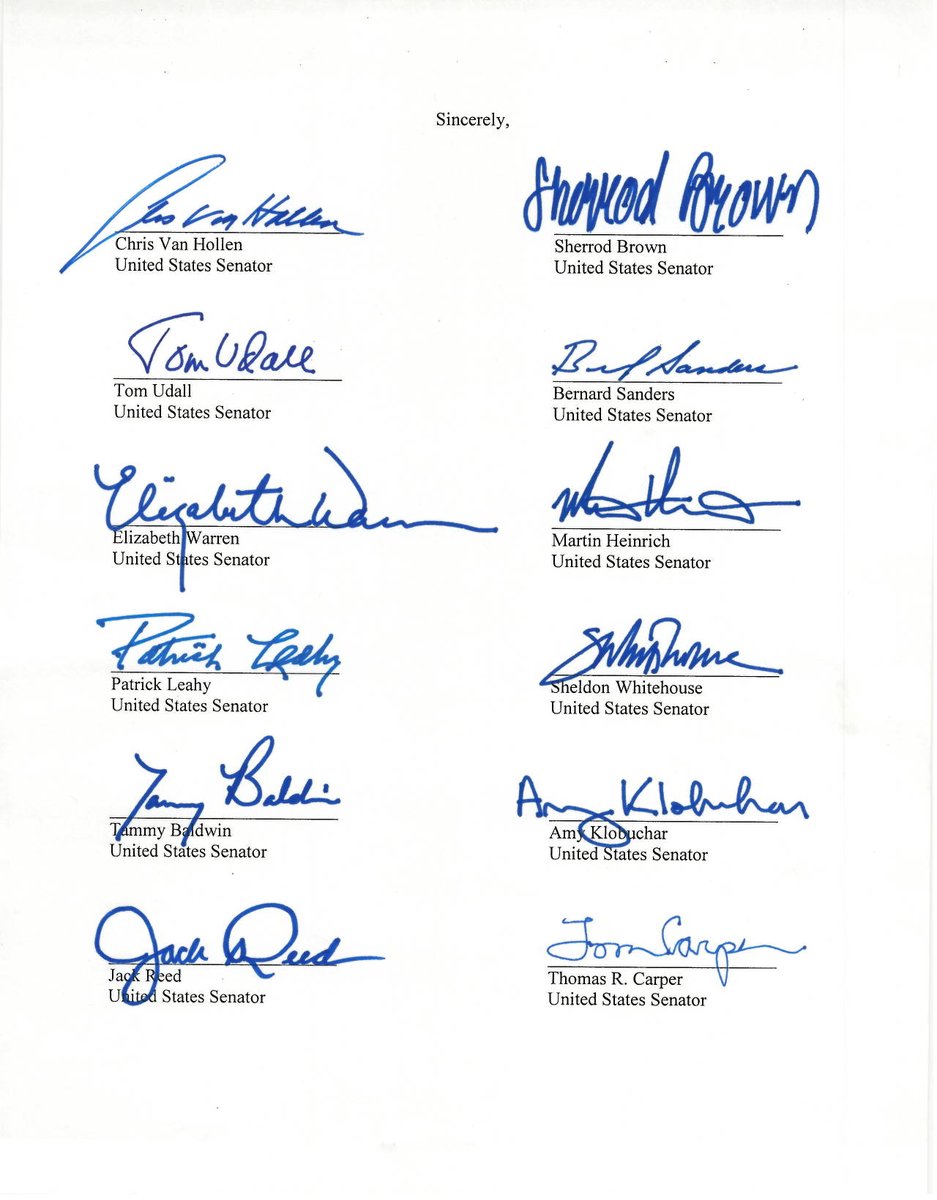 Sincerely,
Chris Van Hollen
Chris Van Hollen
United States Senator
Sherrod Brown
Sherrod Brown
United States Senator
Tom Udall
Tom Udall
United States Senator
Sanders
Bernard Sanders
United States Senator
Elizabeth Warren
Elizabeth Warren
United States Senator
Martin Heinrich
United States Senator
Patrick Leahy
Patrick Leahy
United States Senator
Sheldon Whitehouse
United States Senator
Tammy Baldwin
Tammy Baldwin
United States Senator
Amy Klobuchar
Amy Klobuchar
United States Senator
Jack Reed
Jack Reed
United States Senator
Tom Carper
Thomas R. Carper
United States Senator